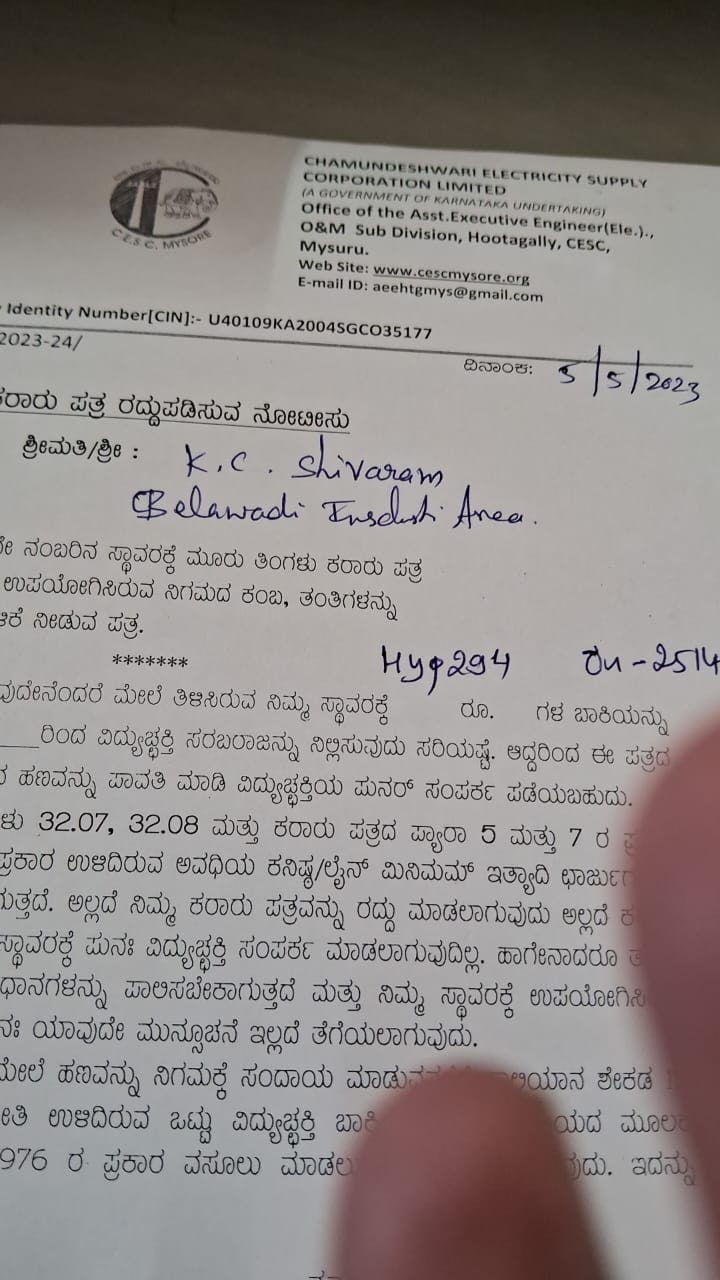 C.E.S.C. MYSORE
CHAMUNDESHWARI ELECTRICITY SUPPLY
CORPORATION LIMITED
(A GOVERNMENT OF KARNATAKA UNDERTAKING)
Office of the Asst.Executive Engineer(Ele.).,
O&M Sub Division, Hootagally, CESC,
Mysuru.
Web Site: www.cescmysore.org
E-mail ID: aeehtgmys@gmail.com
Identity Number[CIN]:- U40109KA2004SGCO35177
2023-24/
ದಿನಾಂಕ: 5/5/2023
ಕರಾರು ಪತ್ರ ರದ್ದುಪಡಿಸುವ ನೋಟೀಸು
ಶ್ರೀಮತಿ/ಶ್ರೀ : K.C. Shivaram
Belawadi Area.
ನಂಬರಿನ ಸ್ಥಾವರಕ್ಕೆ ಮೂರು ತಿಂಗಳು ಕರಾರು ಪತ್ರ
ಉಪಯೋಗಿಸಿರುವ ನಿಗಮದ ಕಂಬ, ತಂತಿಗಳನ್ನು
ನೀಡುವ ಪತ್ರ.
*******
2514
ಮೇಲೆ ತಿಳಿಸಿರುವ ನಿಮ್ಮ ಸ್ಥಾವರಕ್ಕೆ ರೂ. ಗಳ ಬಾಕಿಯನ್ನು
____ರಿಂದ ವಿದ್ಯುಚ್ಛಕ್ತಿ ಸರಬರಾಜನ್ನು ನಿಲ್ಲಿಸುವುದು ಸರಿಯಷ್ಟೆ. ಆದ್ದರಿಂದ ಈ ಪತ್ರದ
ಹಣವನ್ನು ಪಾವತಿ ಮಾಡಿ ವಿದ್ಯುಚ್ಛಕ್ತಿಯ ಪುನರ್ ಸಂಪರ್ಕ ಪಡೆಯಬಹುದು.
32.07, 32.08 ಮತ್ತು ಕರಾರು ಪತ್ರದ ಪ್ಯಾರಾ 5 ಮತ್ತು 7 ರ
ಪ್ರಕಾರ ಉಳಿದಿರುವ ಅವಧಿಯ ಕನಿಷ್ಠ/ಲೈನ್ ಮಿನಿಮಮ್ ಇತ್ಯಾದಿ
ಅಲ್ಲದೆ ನಿಮ್ಮ ಕರಾರು ಪತ್ರವನ್ನು ರದ್ದು ಮಾಡಲಾಗುವುದು ಅಲ್ಲದೆ
ಸ್ಥಾವರಕ್ಕೆ ಪುನಃ ವಿದ್ಯುಚ್ಛಕ್ತಿ ಸಂಪರ್ಕ ಮಾಡಲಾಗುವುದಿಲ್ಲ. ಹಾಗೇನಾದರೂ
ಪಾಲಿಸಬೇಕಾಗುತ್ತದೆ ಮತ್ತು ನಿಮ್ಮ ಸ್ಥಾವರಕ್ಕೆ
ಯಾವುದೇ ಮುನ್ಸೂಚನೆ ಇಲ್ಲದೆ ತೆಗೆಯಲಾಗುವುದು.
ಮೇಲೆ ಹಣವನ್ನು ನಿಗಮಕ್ಕೆ ಸಂದಾಯ ಶೇಕಡ
ಉಳಿದಿರುವ ಒಟ್ಟು ವಿದ್ಯುಚ್ಛಕ್ತಿ
976 ರ ಪ್ರಕಾರ ವಸೂಲು ಇದನ್ನು